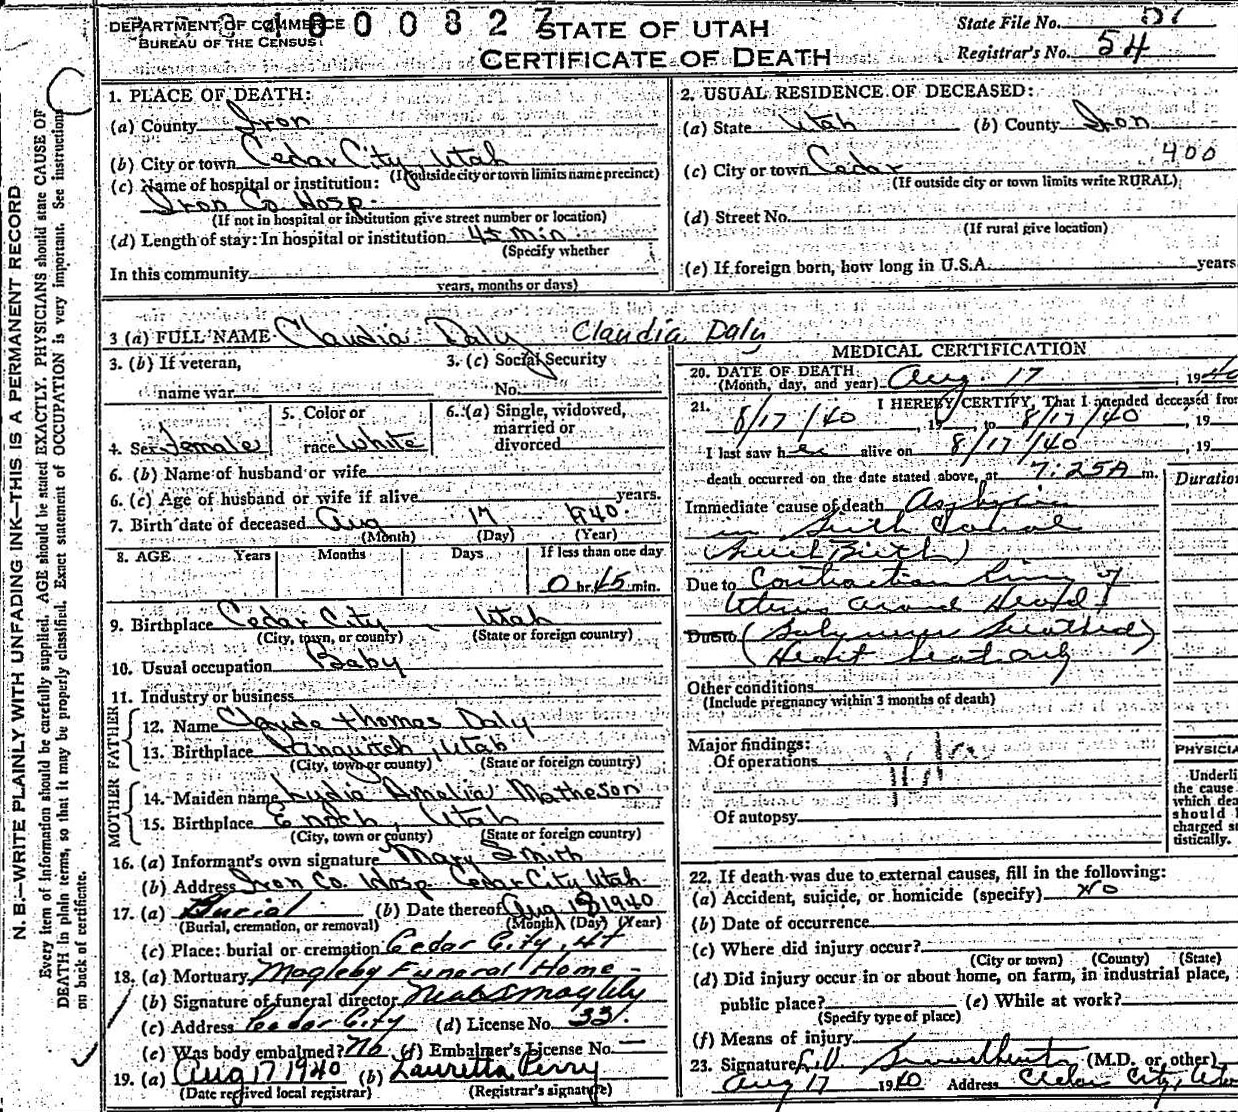 DEPARTMENT OF COMMERCE
BUREAU OF THE CENSUS
1000827
STATE OF UTAH
CERTIFICATE OF DEATH
State File No. 51
Registrar's No. 54
N. B.—WRITE PLAINLY WITH UNFADING INK—THIS IS A PERMANENT RECORD
Every item of information should be carefully supplied. AGE should be stated EXACTLY. PHYSICIANS should state CAUSE OF
DEATH in plain terms, so that it may be properly classified. Exact statement of OCCUPATION is very important. See instructions
on back of certificate.
1. PLACE OF DEATH:
(a) County Iron
(b) City or town Cedar City, Utah
(If outside city or town limits name precinct)
(c) Name of hospital or institution:
Iron Co. Hosp.
(If not in hospital or institution give street number or location)
(d) Length of stay: In hospital or institution 45 min
(Specify whether
In this community
years, months or days)
2. USUAL RESIDENCE OF DECEASED:
(a) State Utah (b) County Iron
400
(c) City or town Cedar
(If outside city or town limits write RURAL)
(d) Street No.
(If rural give location)
(e) If foreign born, how long in U.S.A. years
3 (a) FULL NAME Claudia Daly Claudia Daly
3. (b) If veteran,
name war
3. (c) Social Security
No.
4. Sex Female
5. Color or
race White
6. (a) Single, widowed,
married or
divorced
6. (b) Name of husband or wife
6. (c) Age of husband or wife if alive years.
7. Birth date of deceased Aug 17 1940.
(Month) (Day) (Year)
8. AGE Years Months Days If less than one day
0 hr. 45 min.
9. Birthplace Cedar City, Utah
(City, town, or county) (State or foreign country)
10. Usual occupation Baby
11. Industry or business
FATHER
12. Name Claude Thomas Daly
13. Birthplace Panguitch, Utah
(City, town or county) (State or foreign country)
MOTHER
14. Maiden name Lydia Amelia Matheson
15. Birthplace Enoch, Utah
(City, town or county) (State or foreign country)
16. (a) Informant's own signature Mary Smith
(b) Address Iron Co. Hosp Cedar City, Utah
17. (a) Burial (b) Date thereof Aug 18 1940
(Burial, cremation, or removal) (Month) (Day) (Year)
(c) Place: burial or cremation Cedar City, Ut
18. (a) Mortuary Magleby Funeral Home
(b) Signature of funeral director Magleby
(c) Address Cedar City (d) License No. 33.
(e) Was body embalmed? No (f) Embalmer's License No. —
19. (a) Aug 17 1940 (b) Lauretta Perry
(Date received local registrar) (Registrar's signature)
MEDICAL CERTIFICATION
20. DATE OF DEATH:
(Month, day, and year) Aug. 17, 1940
21. I HEREBY CERTIFY, That I attended deceased from
8/17/40, 19 to 8/17/40, 19
I last saw her alive on 8/17/40, 19
death occurred on the date stated above, at 7:25A m.
Duration
Immediate cause of death Asphyxia
in birth Canal
Birth)
Due to Contraction Ring of
Uterus around Head
Due to (Baby never breathed)
(Heart beat only
Other conditions
(Include pregnancy within 3 months of death)
Major findings:
Of operations
Of autopsy
PHYSICIA
Underli
the cause
which dea
should b
charged st
tistically.
22. If death was due to external causes, fill in the following:
(a) Accident, suicide, or homicide (specify) No
(b) Date of occurrence
(c) Where did injury occur?
(City or town) (County) (State)
(d) Did injury occur in or about home, on farm, in industrial place,
public place? (e) While at work?
(Specify type of place)
(f) Means of injury
23. Signature (M.D. or other)
Aug 17 1940 Address Cedar City, Utah